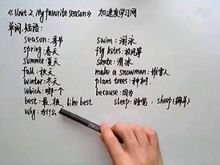 《Unit 2 My favourite season》 加速度学习网
单词、短语:
season: 季节 swim: 游泳
spring: 春天 fly kites: 放风筝
summer: 夏天 skate: 滑冰
fall: 秋天 make a snowman: 堆雪人
winter: 冬天 plant trees: 种树
which: 哪个 because: 因为
best: 最, 极 like best sleep: 睡觉 sleep
why: 为什么